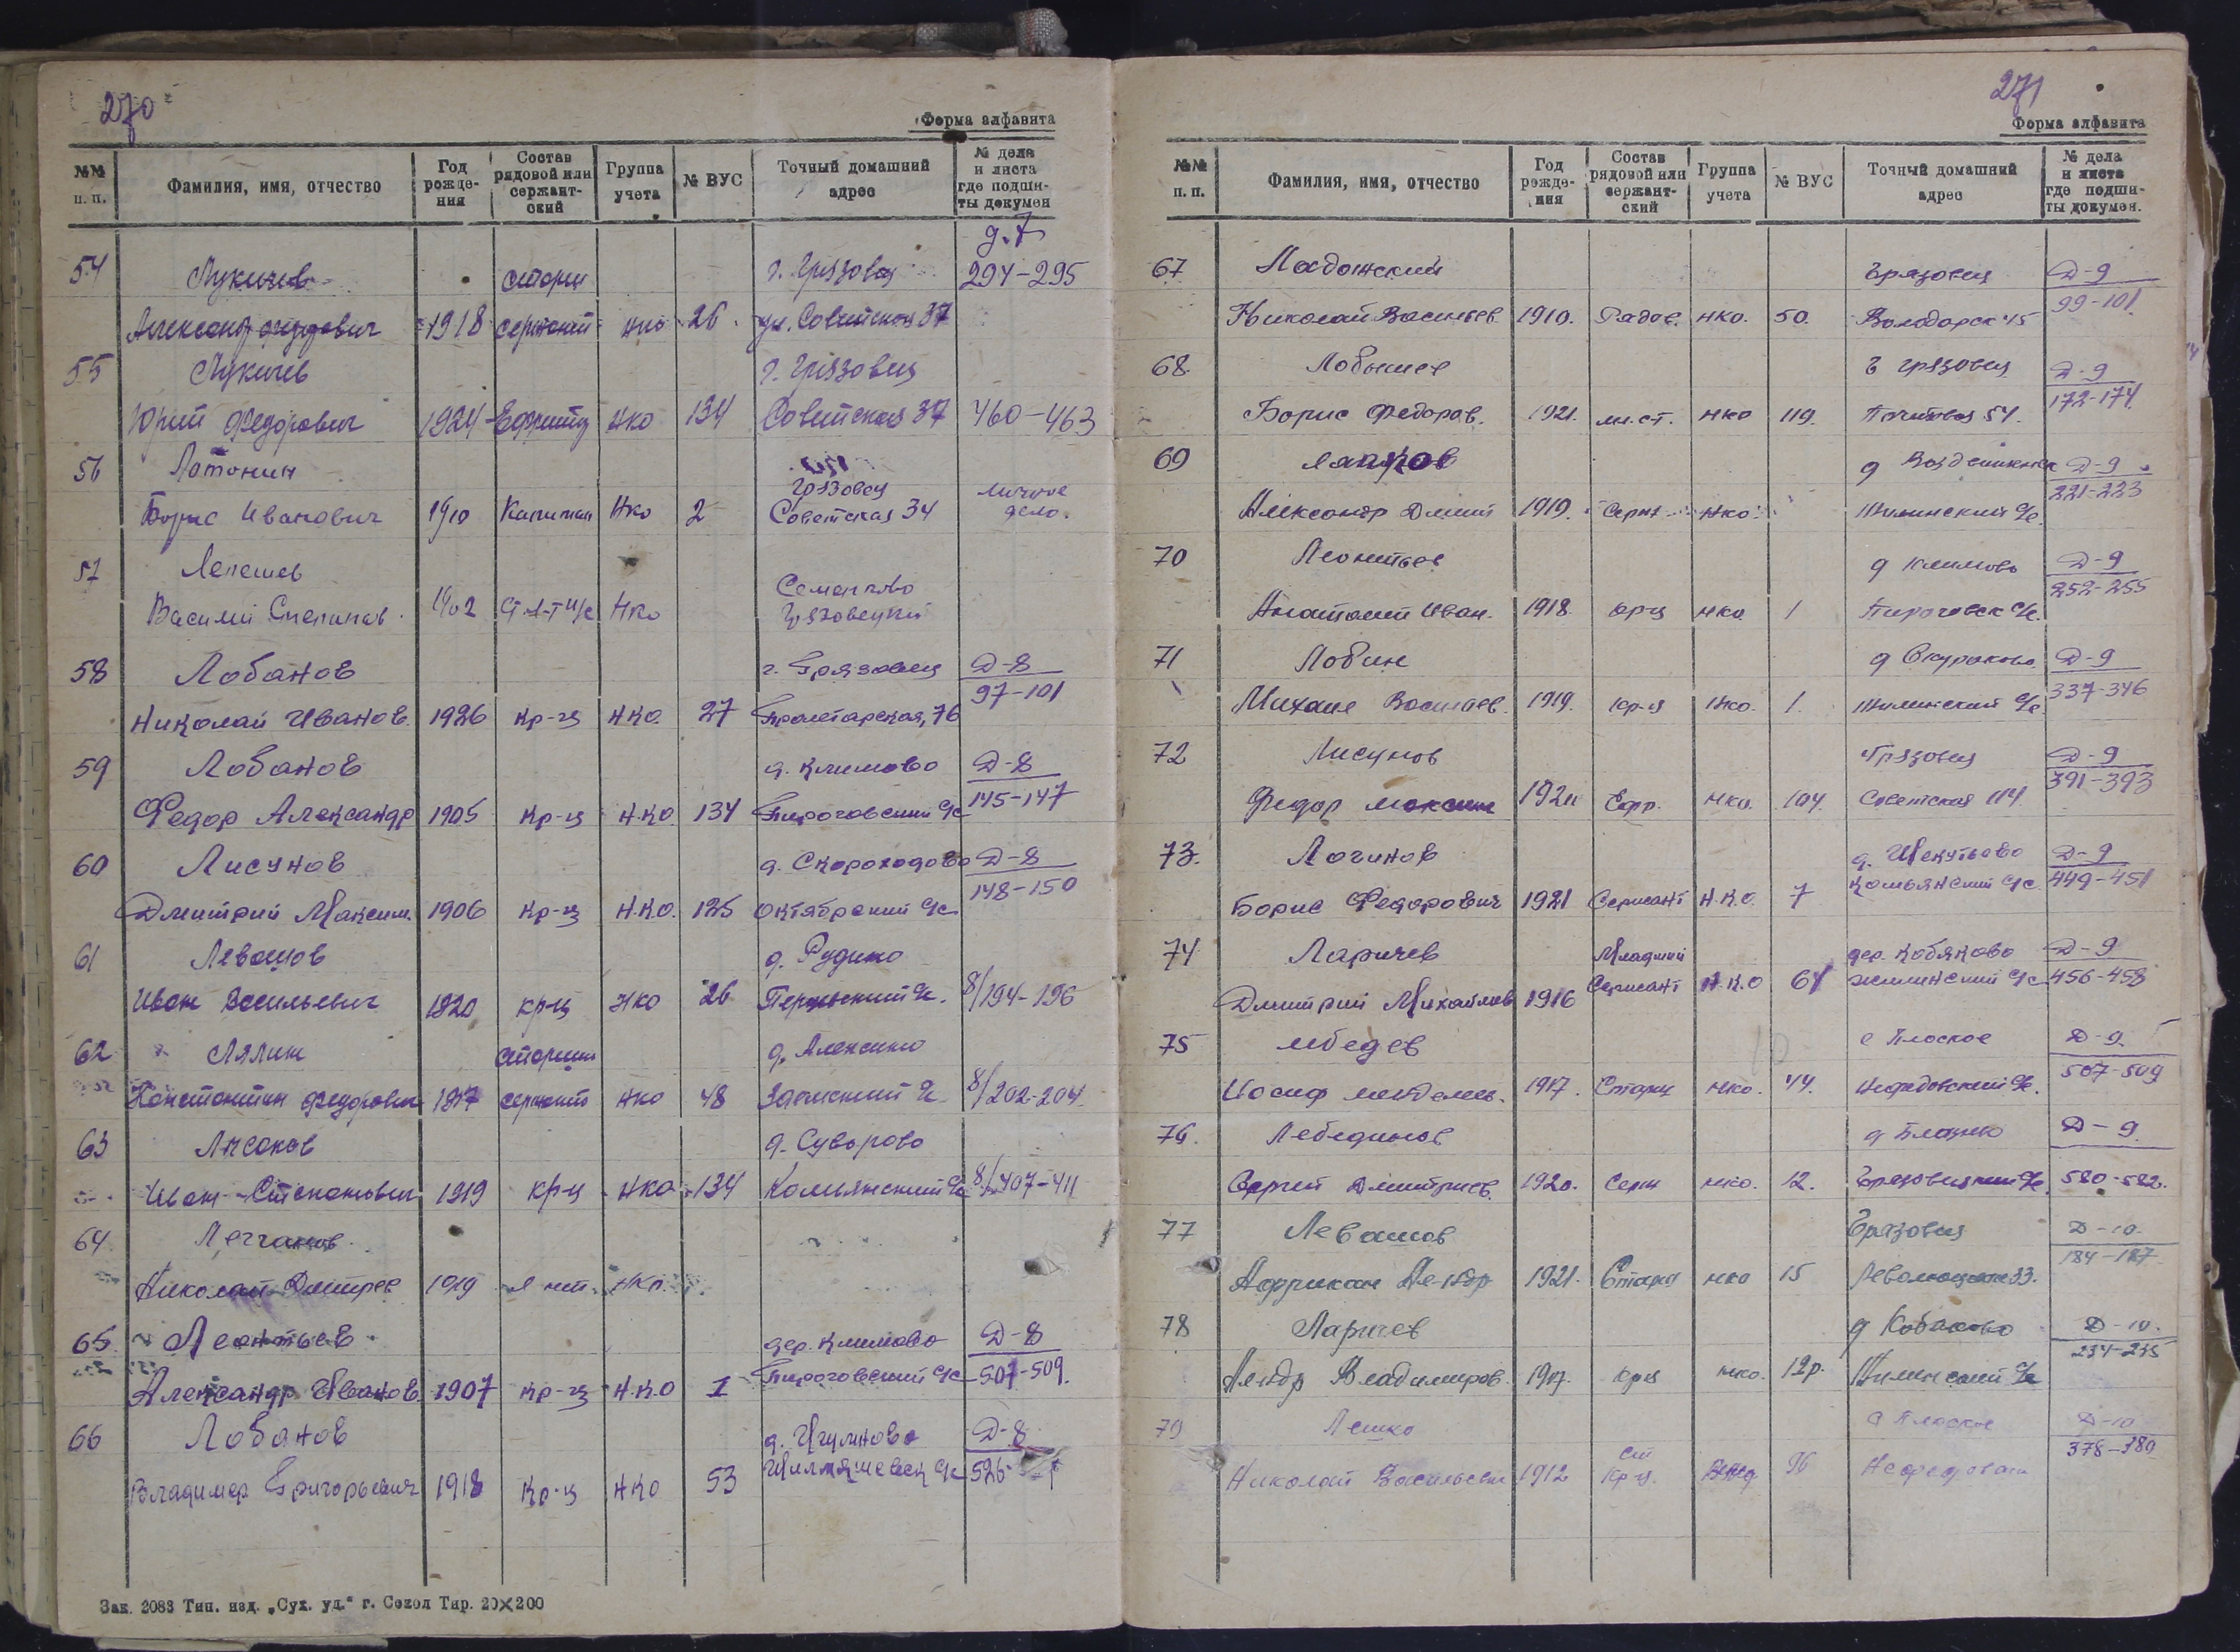 270
Форма алфавита
№№ п. п. Фамилия, имя, отчество Год рожде-ния Состав рядовой или сержант-ский Группа учета № ВУС Точный домашний адрес № дела и листа где подши-ты докумен
д. 7
54 Лукичев старш г. Грязовец 294-295
Александр Федорович 1918 сержант нко 26 ул. Советская 37
55 Лукичев г. Грязовец
Юрий Федорович 1924 Ефрейтр НКО 134 Советская 37 460-463
56 Латонин Грязовец личное
Борис Иванович 1910 Капитан Нко 2 Советская 34 дело.
57 Лепешев Семенково
Василий Степанов. 1902 Нко Грязовецкий
58 Лобанов г. Грязовец Д-8
Николай Иванов. 1926 Кр-ц НКО. 27 Пролетарская, 76 97-101
59 Лобанов д. Климово Д-8
Федор Александр 1905 Кр-ц Н.КО. 134 Пироговский с/с 145-147
60 Лисунов д. Скороходово Д-8
Дмитрий Максим. 1906 Кр-ц Н.К.О. 125 Октябрский с/с 148-150
61 Левашов д. Рудино
Иван Васильевич 1920 кр-ц НКО 26 8/194-196
62 Лялин старшин д. Алексино
Константин Федорович 1917 сержант нко 48 8/202-204
63 Лисаков д. Суворово
Иван Степанович 1919 кр-ц НКО 134 Комьянский с/с 8/407-411
64
Николай Дмитрев 1919 НКо.
65. Леонтьев дер. Климово Д-8
Александр Иванов. 1907 Кр-ц Н.К.О 1 Пироговский с/с 507-509.
66 Лобанов д. Д-8
Владимер Григорьевич 1918 Кр-ц НКО 53 526-
Зак. 2083 Тип. изд. „Сух. уд.“ г. Сокол Тир. 20×200
271
Форма алфавита
№№ п. п. Фамилия, имя, отчество Год рожде-ния Состав рядовой или сержант-ский Группа учета № ВУС Точный домашний адрес № дела и листа где подши-ты докумен.
67 Ладожский Грязовец Д-9
Николай Васильев. 1910. Рядов. НКО. 50. Володарск 45 99-101.
68. Лобышев г Грязовец Д-9
Борис Федоров. 1921. мл.ст. НКО 119. 172-174.
69 Лапков д Д-9
Александр Дмит 1919. Серж НКО. с/с. 221-223
70 Леонтьев д Климово Д-9
Анатолий Иван. 1918. кр-ц НКО. 1 Пироговск с/с. 252-255
71 Лобин д Скураково Д-9
Михаил Васильев. 1919. кр-ц Нко. 1. с/с. 337-346
72 Лисунов Грязовец Д-9
Федор Максим Ефр. НКО. 104. Советская 114. 391-393
73. Логинов д. Д-9
Борис Федорович 1921 Сержант Н.К.О. 7 Комьянский с/с 449-451
74 Ларичев Младший дер. Кобяково Д-9
Дмитрий Михайлов 1916 Сержант Н.К.О 64 с/с 456-458
75 Лебедев с Плоское Д-9.
Иосиф 1917. Старш НКО. 44. Нефедовский с/с. 507-509
76. Лебединов д Д-9.
Сергей Дмитриев. 1920. Серж НКО. 12. Грязовецкий с/с. 580-582.
77 Левашов Грязовец Д-10.
Африкан Ал-ндр 1921. Старш НКО 15 33. 184-187
78 Ларичев д Кобяково Д-10.
Ал-ндр Владимиров. 1917. Крц НКО. 12р. с/с 234-235
79 Лешко с Плоское Д-10
Николай Васильевич 1912 ст Кр-ц. 96 378-380